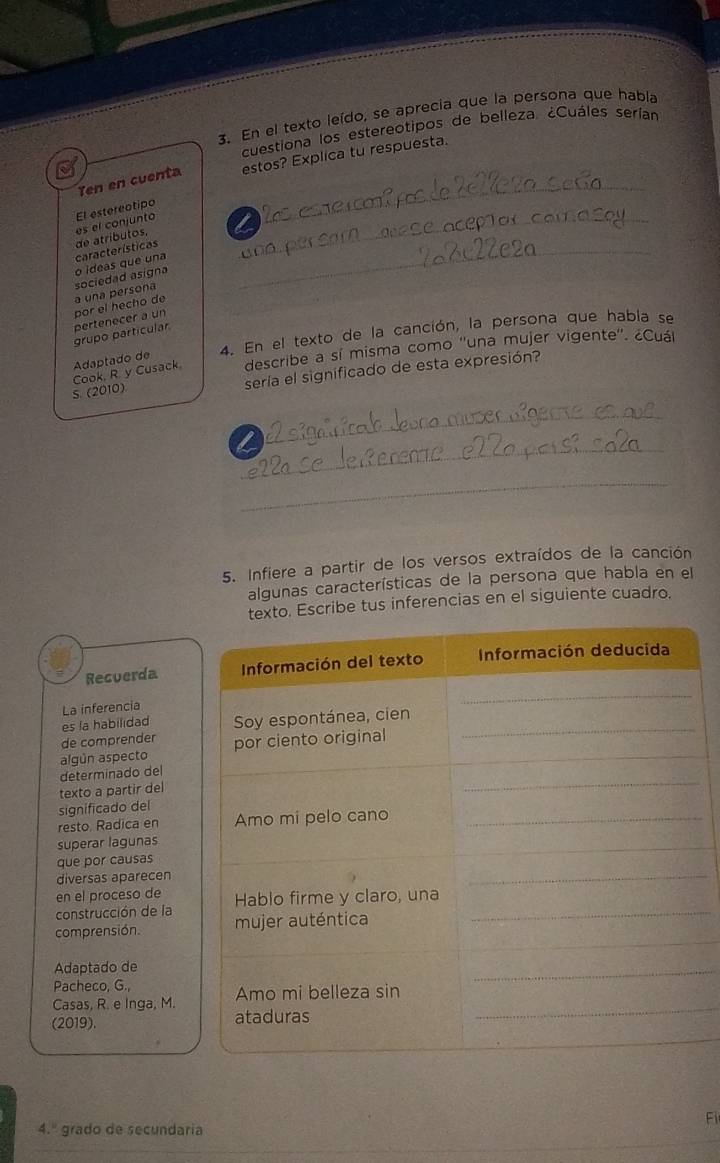 3. En el texto leído, se aprecia que la persona que habla
cuestiona los estereotipos de belleza. ¿Cuáles serían
estos? Explica tu respuesta.
Ten en cuenta
El estereotipo
es el conjunto
de atributos,
características
o ideas que una
sociedad asigna
a una persona
por el hecho de
pertenecer a un
grupo particular.
Adaptado de
Cook, R. y Cusack,
S. (2010)
seria
una aceptar
4. En el texto de la canción, la persona que habla se
describe a sí misma como "una mujer vigente". ¿Cuál
sería el significado de esta expresión?
el es que
e22a se e22a
5. Infiere a partir de los versos extraídos de la canción
algunas características de la persona que habla en el
texto. Escribe tus inferencias en el siguiente cuadro.
Recuerda
La inferencia
es la habilidad
de comprender
algún aspecto
determinado del
texto a partir del
significado del
resto. Radica en
superar lagunas
que por causas
diversas aparecen
en el proceso de
construcción de la
comprensión.
Adaptado de
Pacheco, G.,
Casas, R. e Inga, M.
(2019).
Información del texto
Información deducida
Soy espontánea, cien
por ciento original
Amo mi pelo cano
Hablo firme y claro, una
mujer auténtica
Amo mi belleza sin
ataduras
4.° grado de secundaria
Fi